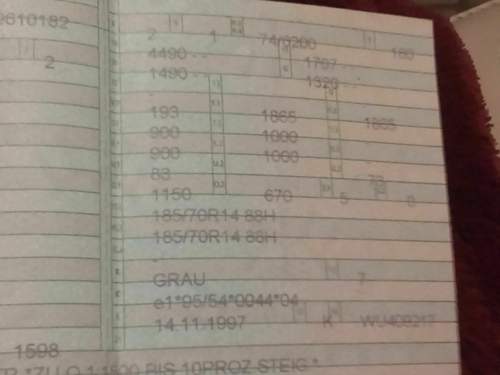 0610182
2 1 74/5200 180
2
4490 - - 1797 - -
1490 - - 1320 - -
-
193 1865 1865
900 1000
900 1000
83
1150 670 5 0
185/70R14 88H
185/70R14 88H
-
GRAU 7
e1*95/54*0044*04
14.11.1997 K
1598
*ZU O.1:1500 BIS 10PROZ.STEIG.*